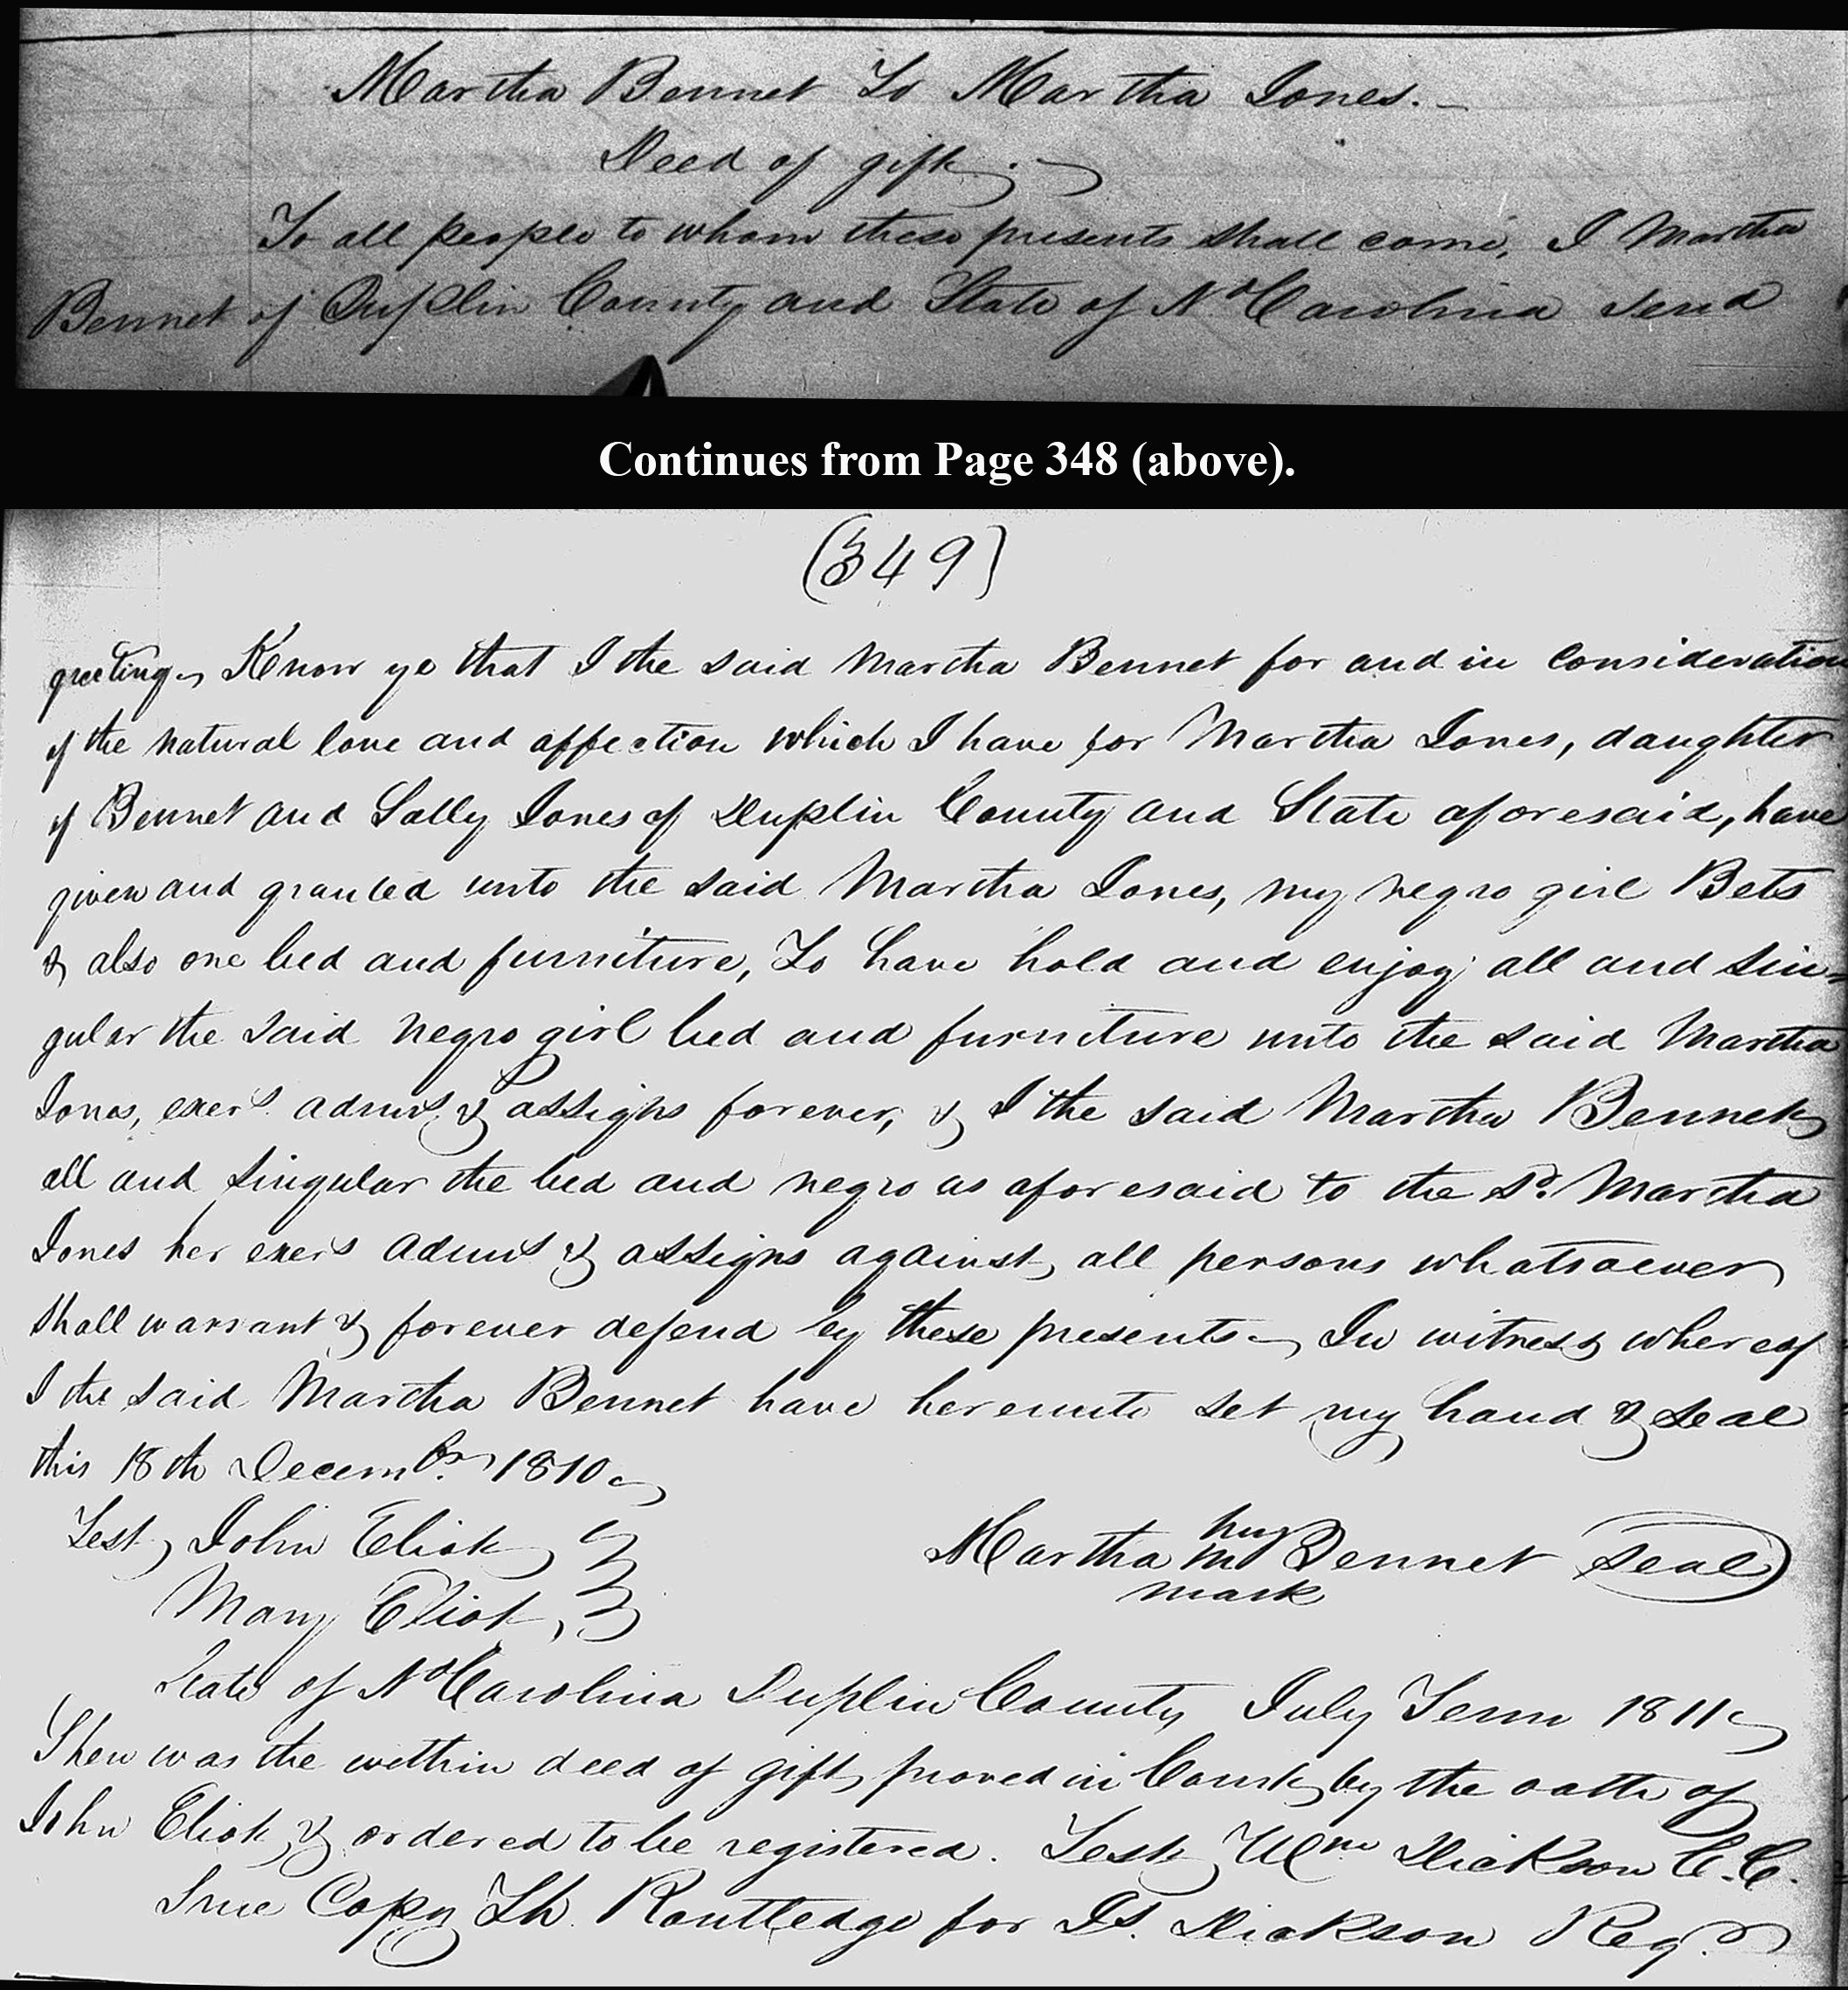 Martha Bennet To Martha Jones.
Deed of gift.
To all people to whom these presents shall come, I Martha
Bennet of Duplin County and State of No Carolina Send
Continues from Page 348 (above).
(349)
greeting Know ye that I the said Martha Bennet for and in consideration
of the natural love and affection which I have for Martha Jones, daughter
of Bennet and Sally Jones of Duplin County and State aforesaid, have
given and granted unto the said Martha Jones, my negro girl Bets
& also one bed and furniture, To have hold and enjoy all and Sin=
gular the said negro girl bed and furniture unto the said Martha
Jones, exers. admrs & assigns forever, & I the said Martha Bennet
all and singular the bed and negro as aforesaid to the sd. Martha
Jones her exers admrs & assigns against all persons whatsoever
shall warrant & forever defend by these presents In witness whereof
I the said Martha Bennet have hereunto set my hand & seal
this 18th Decembr. 1810
Test, John Eliot
Mary Eliot,
her
Martha M Bennet Seal
mark
State of No Carolina Duplin County July Term 1811
Then was the within deed of gift proved in Court by the oath of
John Eliot & ordered to be registered. Test Wm Dickson C.C.
True Copy Th. Routledge for Js. Dickson Regr